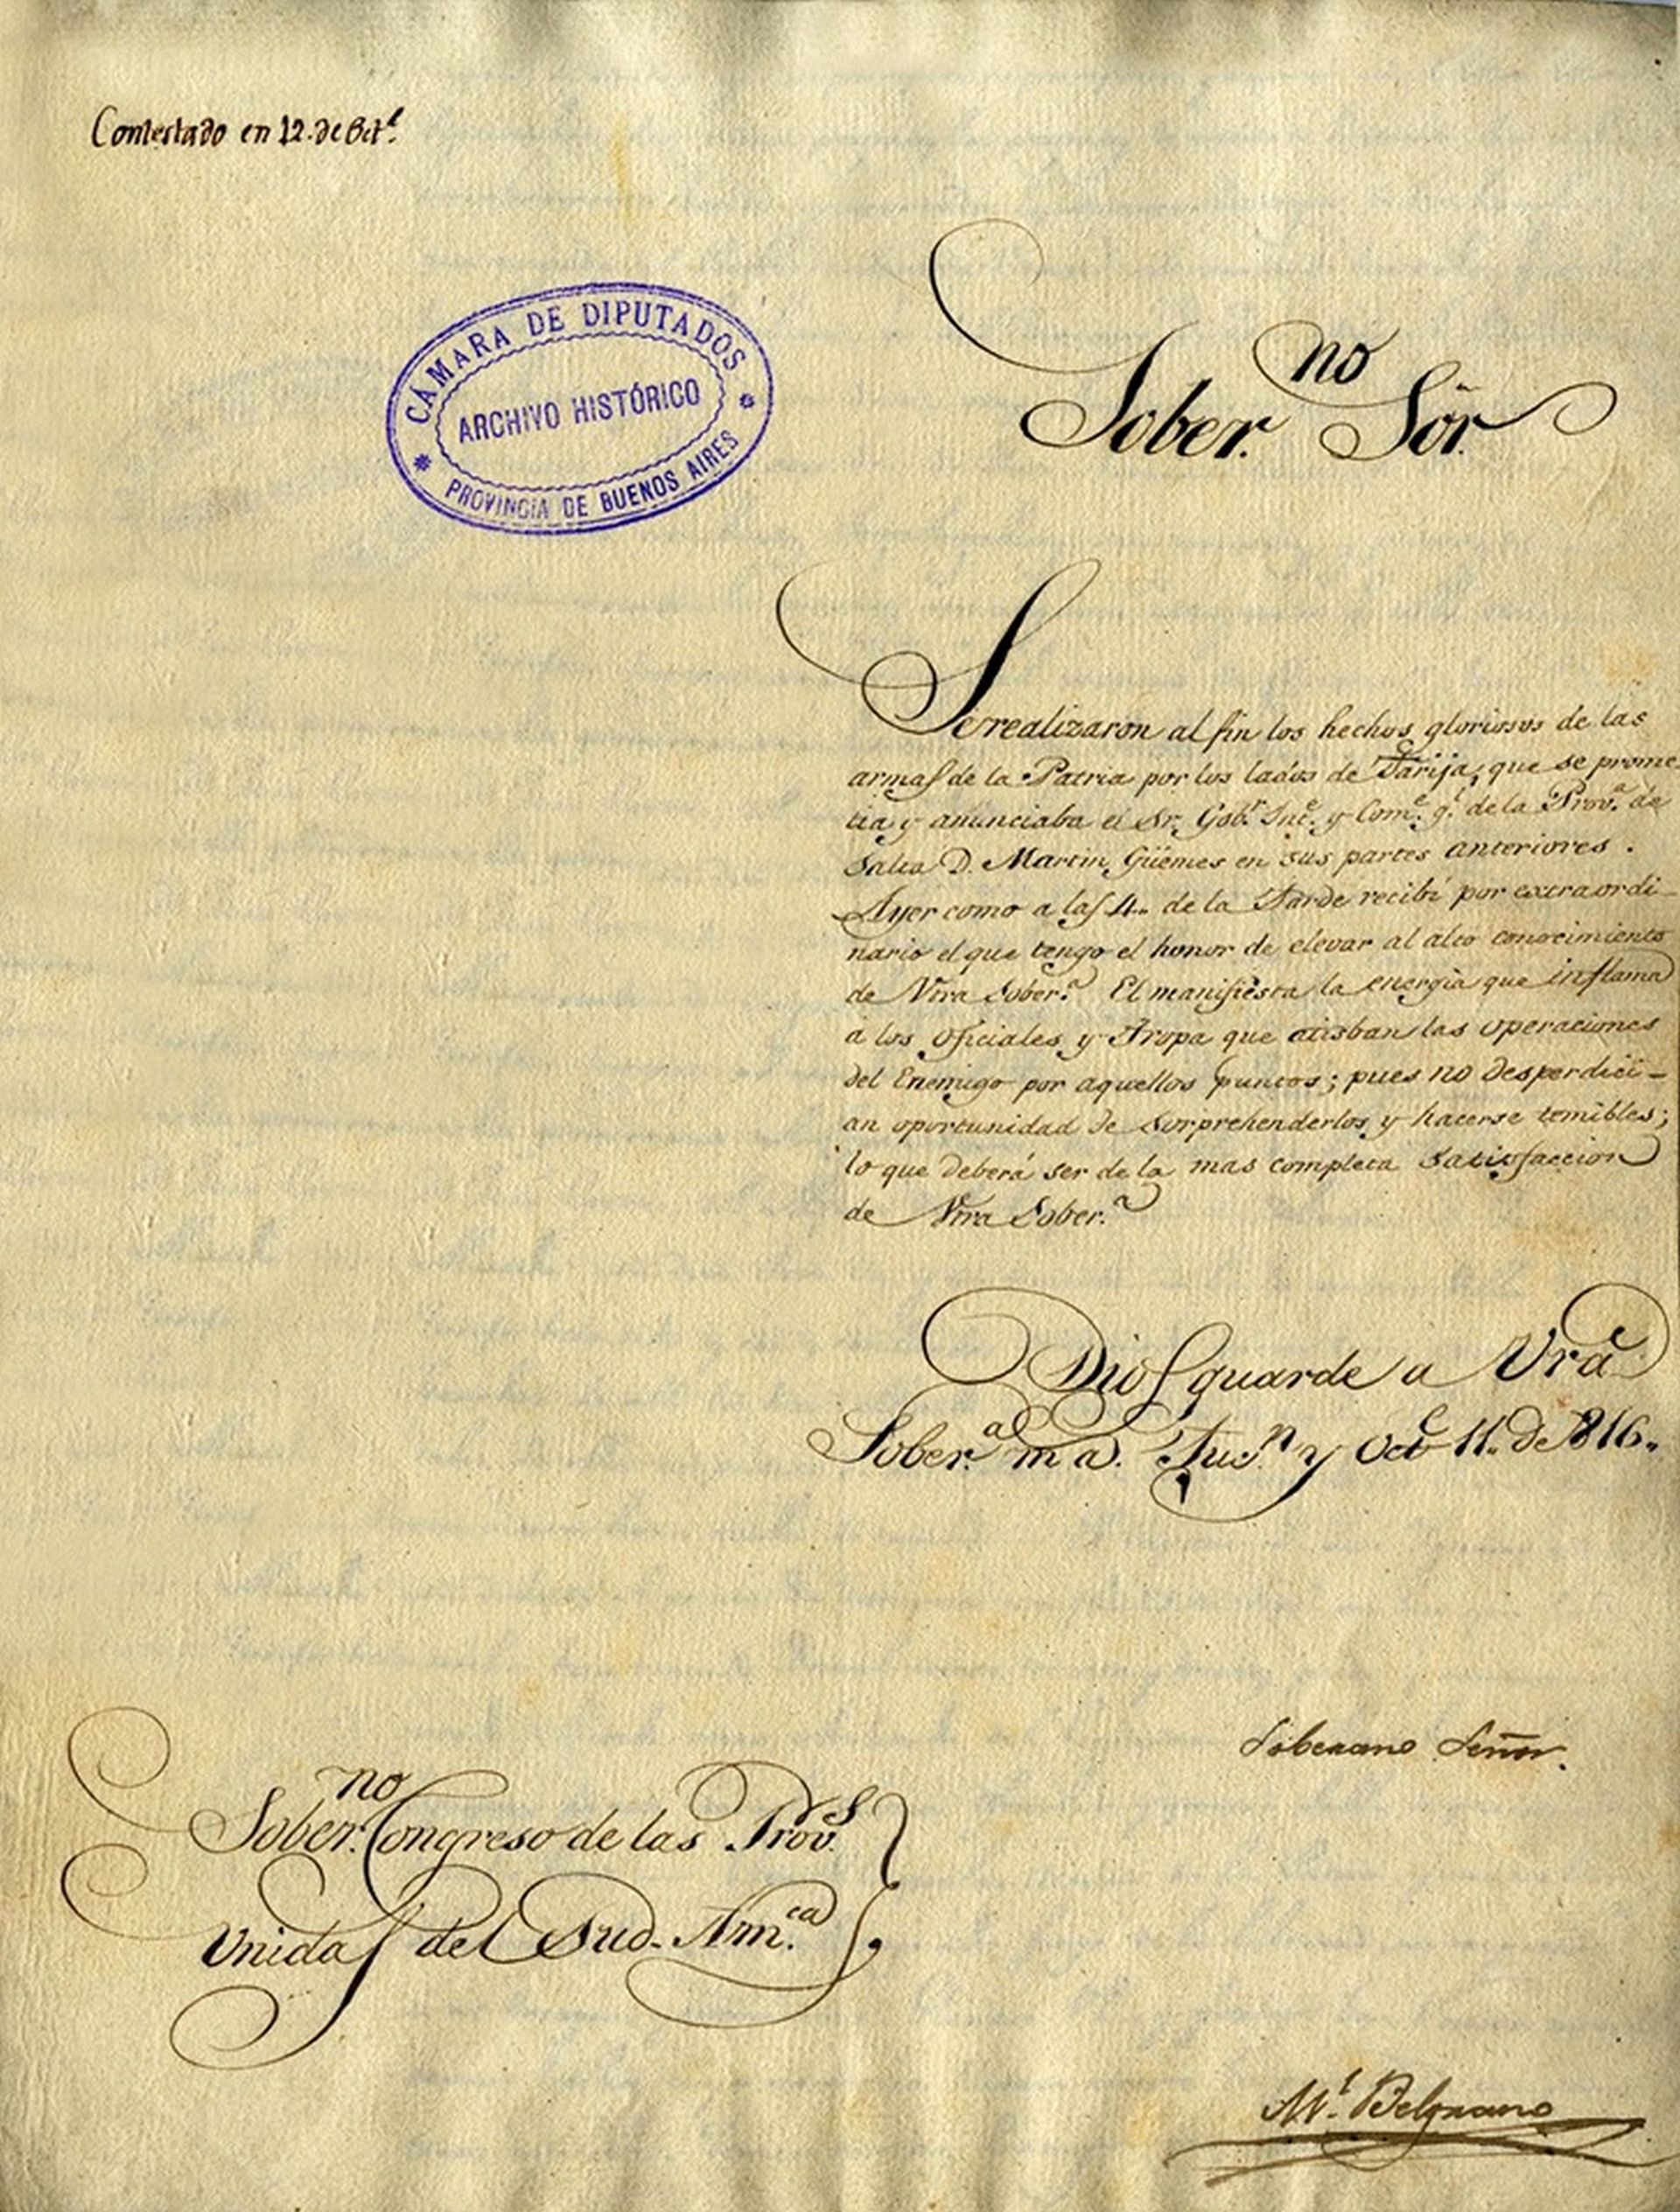 Contestado en 12. de Oct.e
CÁMARA DE DIPUTADOS
ARCHIVO HISTÓRICO
PROVINCIA DE BUENOS AIRES
Sober.no Sõr.
Se realizaron al fin los hechos gloriosos de las
armas de la Patria por los lados de Tarija, que se prome
tia y anunciaba el Sr. Gob.r Int.e y Com.e g.l de la Prov.a de
Salta D. Martin Güemes en sus partes anteriores.
Ayer como a las 4„ de la Tarde recibí por extraordi
nario el que tengo el honor de elevar al alto conocimiento
de Vtra Sober.a El manifiesta la energia que inflama
a los oficiales y Tropa que atisban las operaciones
del Enemigo por aquellos puntos; pues no desperdici-
an oportunidad de sorprehenderlos y hacerse temibles;
lo que deberá ser de la mas completa satisfaccion
de Vtra Sober.a
Dios guarde a Vra
Sober.a m a. Tuc.n y Oct.e 11„ de 1816„
Soberano Señor.
Sober.no Congreso de las Prov.s
Unidas del Sud-Am.ca
M.l Belgrano